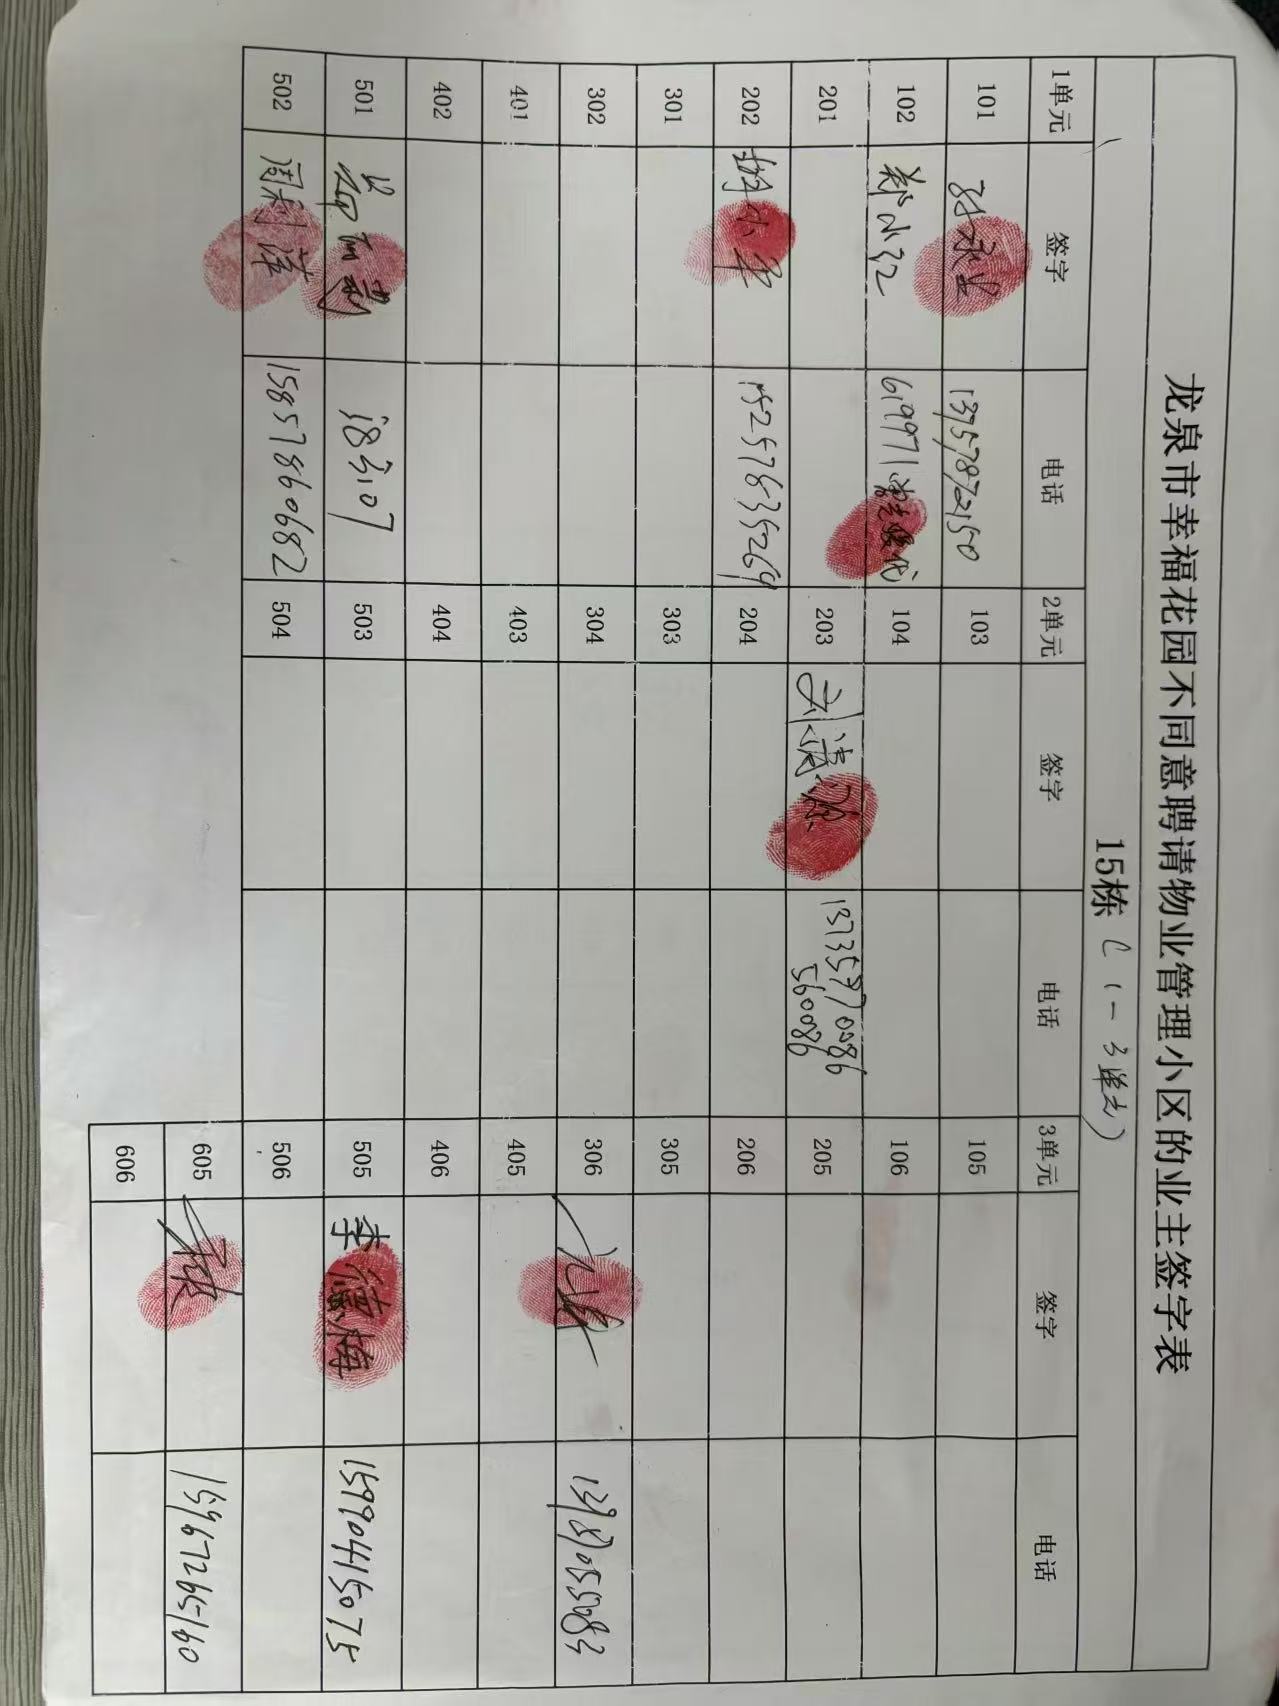 龙泉市幸福花园不同意聘请物业管理小区的业主签字表
15栋 C (一 3单元)
1单元 签字 电话 2单元 签字 电话 3单元 签字 电话
101 13757872150 103 105
102 郑小红 619971 104 106
201 203 13735770086 560086 205
202 15257835269 204 206
301 303 305
302 304 306
401 403 405
402 404 406
501 503 505 李德梅 15990415075
502 周利萍 15857860682 504 506
605 15967265160
606